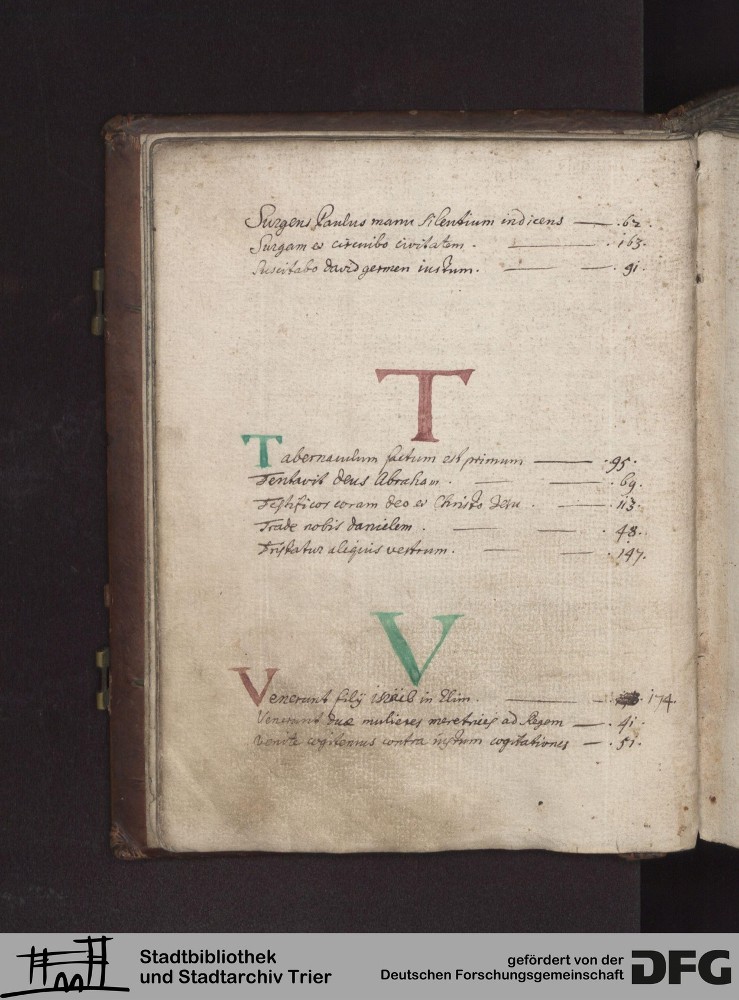 Surgens Paulus manu silentium indicens — .62.
Surgam et circuibo civitatem . — . 163.
Suscitabo david germen iustum. — — . 91.
T
Tabernaculum factum est primum — .95.
Tentavit deus Abraham . — — . 69.
Testificor coram deo et Christo Jesu . — . 113.
Trade nobis danielem . — — . 48.
Tristatur aliquis vestrum . — — . 147.
V
Venerunt filij israel in Elim . — 174.
Venerunt duæ mulieres meretrices ad Regem — . 41.
Venite cogitemus contra iustum cogitationes — . 51.
Stadtbibliothek
und Stadtarchiv Trier
gefördert von der
Deutschen Forschungsgemeinschaft
DFG